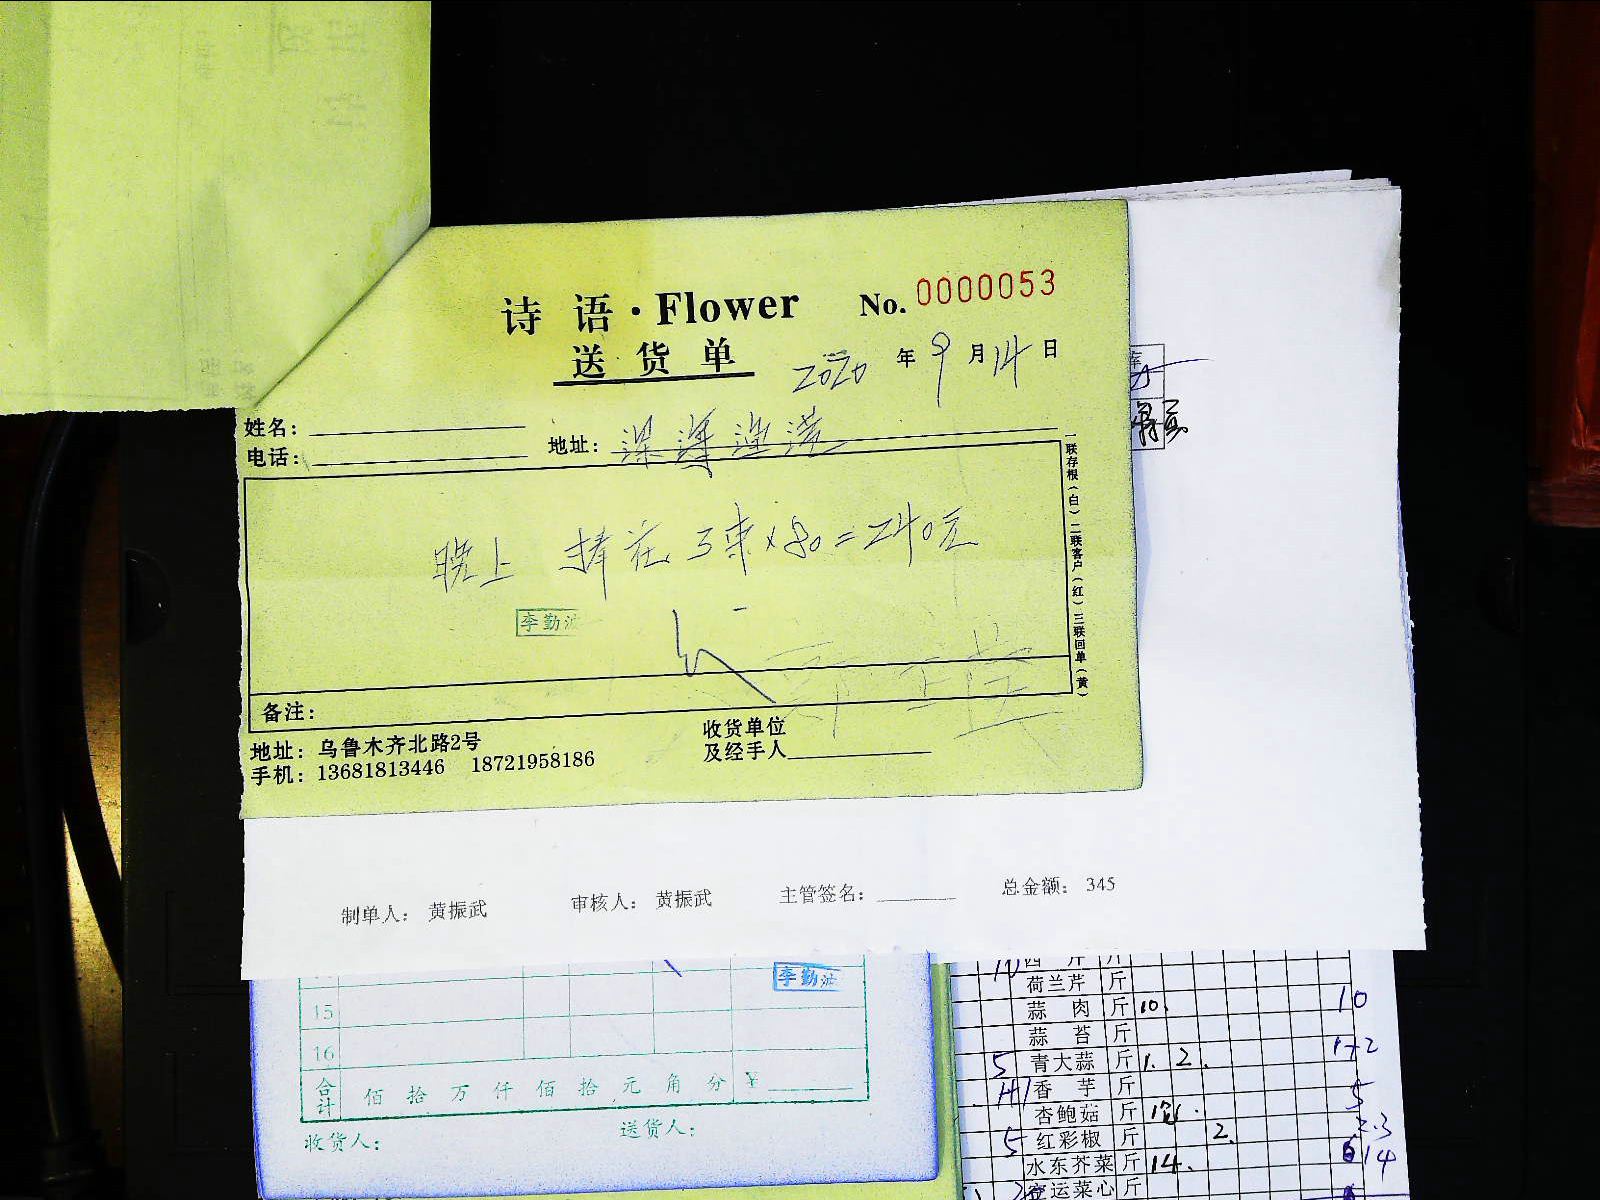 诗 语·Flower No. 0000053
送 货 单 2020 年 9 月 14 日
姓名：
电话：
地址：深 海 渔 港
晚上 捧花 3束×80=240元
李勤波
备注：
一联存根（白）二联客户（红）三联回单（黄）
地址：乌鲁木齐北路2号
手机：13681813446 18721958186
收货单位
及经手人
制单人： 黄振武 审核人： 黄振武 主管签名： 总金额： 345
李勤波
15
16
合计 佰 拾 万 仟 佰 拾 元 角 分 ¥
收货人： 送货人：
西 芹 斤
荷兰芹 斤
蒜 肉 斤 10. 10
蒜 苔 斤
5 青大蒜 斤 1. 2. 1+2
香 芋 斤
杏鲍菇 斤 5
5 红彩椒 斤 2. 2.3
水东芥菜 斤 14. 14
运菜心 斤